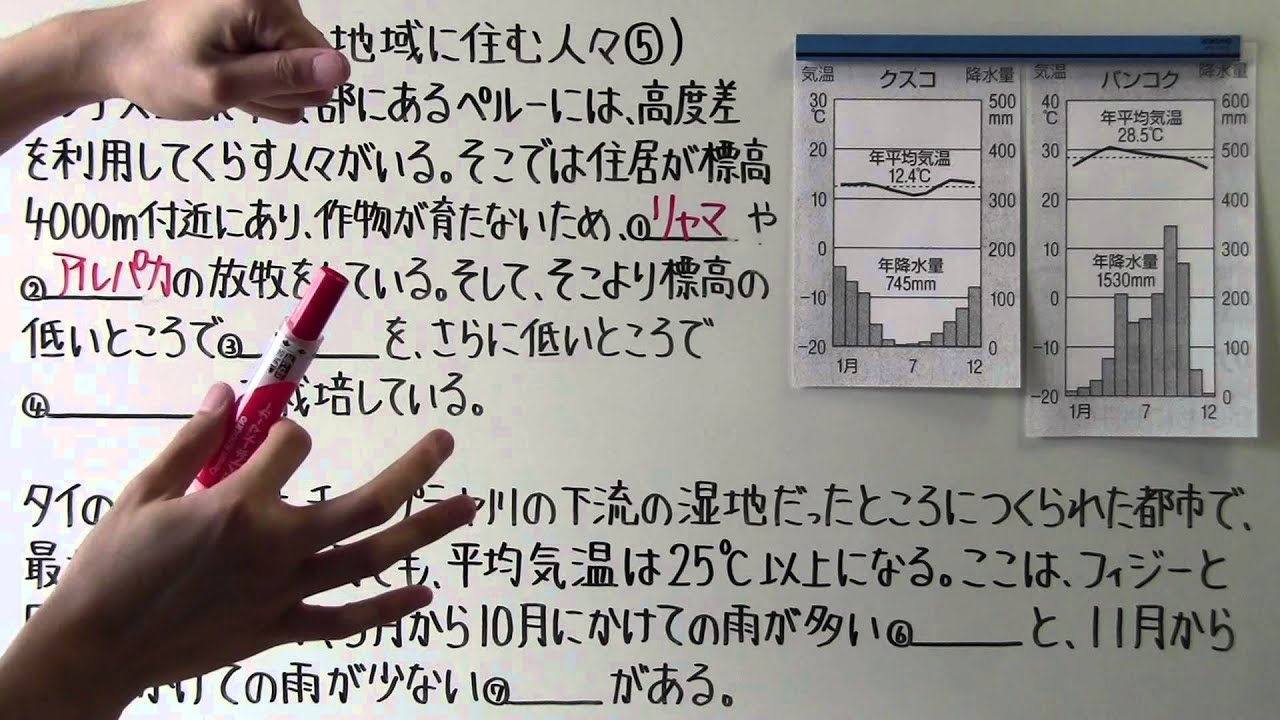 地域に住む人々⑤)
部にあるペルーには、高度差
を利用してくらす人々がいる。そこでは住居が標高
4000m付近にあり、作物が育たないため、①リャマ や
②アルパカの放牧を している。そして、そこより標高の
低いところで③ を、さらに低いところで
④ 栽培している。
タイの 川の下流の湿地だったところにつくられた都市で、
最 も、平均気温は25℃以上になる。ここは、フィジーと
月から10月にかけての雨が多い⑥ と、11月から
かけての雨が少ない⑦ がある。
気温 クスコ 降水量
30 ℃ 500 mm
20 400
年平均気温
12.4℃
10 300
0 200
年降水量
745mm
-10 100
-20 0
1月 7 12
気温 バンコク 降水量
40 ℃ 600 mm
年平均気温
28.5℃
30 500
20 400
10 300
年降水量
1530mm
0 200
-10 100
-20 0
1月 7 12